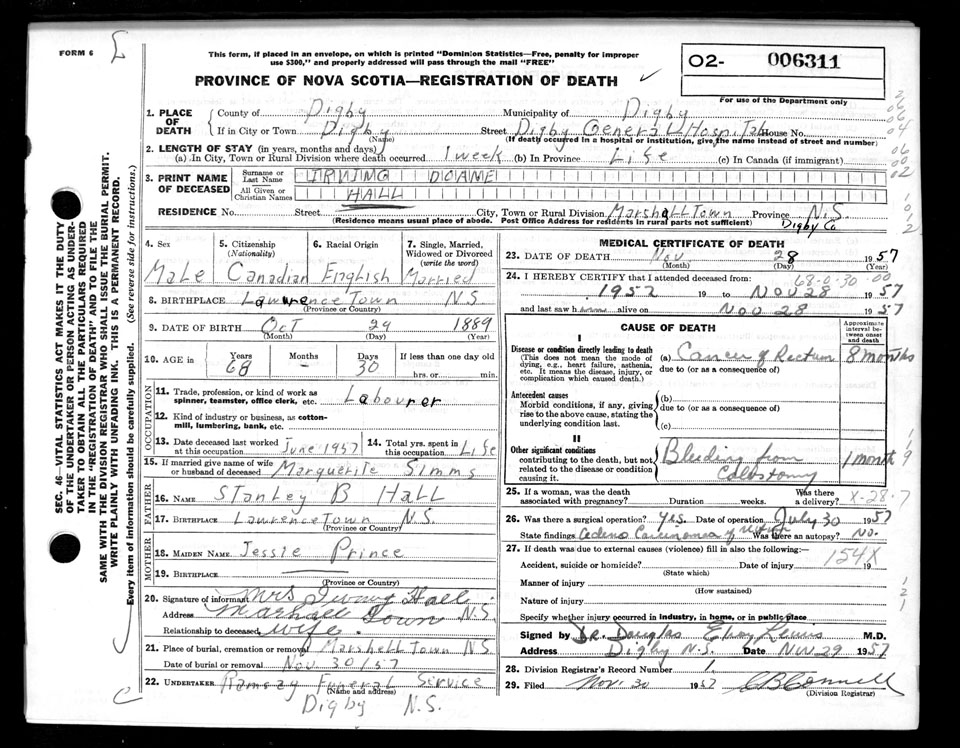 FORM 6
This form, if placed in an envelope, on which is printed "Dominion Statistics—Free, penalty for improper
use $300," and properly addressed will pass through the mail "FREE"
PROVINCE OF NOVA SCOTIA—REGISTRATION OF DEATH
O2- 006311
For use of the Department only
SEC. 46 VITAL STATISTICS ACT MAKES IT THE DUTY
OF THE UNDERTAKER OR PERSON ACTING AS UNDER-
TAKER TO OBTAIN ALL THE PARTICULARS REQUIRED
IN THE "REGISTRATION OF DEATH" AND TO FILE THE
SAME WITH THE DIVISION REGISTRAR WHO SHALL ISSUE THE BURIAL PERMIT.
WRITE PLAINLY WITH UNFADING INK. THIS IS A PERMANENT RECORD.
Every item of information should be carefully supplied. (See reverse side for instructions.)
1. PLACE OF DEATH
County of Digby Municipality of Digby
If in City or Town Digby Street Digby General Hospital House No.
(Name) (If death occurred in a hospital or institution, give the name instead of street and number)
2. LENGTH OF STAY (in years, months and days)
(a) In City, Town or Rural Division where death occurred 1 week (b) In Province Life (c) In Canada (if immigrant)
3. PRINT NAME OF DECEASED
Surname or Last Name IRVING DOANE
All Given or Christian Names HALL
RESIDENCE No. Street City, Town or Rural Division Marshalltown Province N.S.
(Residence means usual place of abode. Post Office Address for residents in rural parts not sufficient) Digby Co
4. Sex Male
5. Citizenship (Nationality) Canadian
6. Racial Origin English
7. Single, Married, Widowed or Divorced (write the word) Married
8. BIRTHPLACE Lawrencetown N.S.
(Province or Country)
9. DATE OF BIRTH Oct 29 1889
(Month) (Day) (Year)
10. AGE in Years 68 Months – Days 30 If less than one day old hrs. or min.
OCCUPATION
11. Trade, profession, or kind of work as spinner, teamster, office clerk, etc. Labourer
12. Kind of industry or business, as cotton-mill, lumbering, bank, etc.
13. Date deceased last worked at this occupation June 1957
14. Total yrs. spent in this occupation Life
15. If married give name of wife or husband of deceased Marguerite Simms
FATHER
16. NAME Stanley B Hall
17. BIRTHPLACE Lawrencetown N.S.
(Province or Country)
MOTHER
18. MAIDEN NAME Jessie Prince
19. BIRTHPLACE
(Province or Country)
20. Signature of informant Mrs Irving Hall
Address Marshall Town N.S.
Relationship to deceased wife.
21. Place of burial, cremation or removal Marshelltown N.S.
Date of burial or removal Nov 30/57
22. UNDERTAKER Ramsay Funeral Service
(Name and address)
Digby N.S.
MEDICAL CERTIFICATE OF DEATH
23. DATE OF DEATH Nov 28 1957
(Month) (Day) (Year)
68-0-30-00
24. I HEREBY CERTIFY that I attended deceased from:
1952 19 to Nov 28 1957
and last saw h alive on Nov 28 1957
CAUSE OF DEATH
Approximate interval between onset and death
I
Disease or condition directly leading to death
(This does not mean the mode of dying, e.g., heart failure, asthenia, etc. It means the disease, injury, or complication which caused death.)
(a) Cancer of Rectum 8 months
due to (or as a consequence of)
Antecedent causes
Morbid conditions, if any, giving rise to the above cause, stating the underlying condition last.
(b)
due to (or as a consequence of)
(c)
II
Other significant conditions
contributing to the death, but not related to the disease or condition causing it.
Bleeding from Colostomy 1 month
25. If a woman, was the death associated with pregnancy? Duration weeks. Was there a delivery? X-28-7
26. Was there a surgical operation? Yes. Date of operation July 30 1957
State findings Adeno Carcinoma of Was there an autopsy? No.
27. If death was due to external causes (violence) fill in also the following:—
154X
Accident, suicide or homicide? Date of injury 19
(State which)
Manner of injury
(How sustained)
Nature of injury
Specify whether injury occurred in industry, in home, or in public place
Signed by Dr. Douglas Lewis M.D.
Address Digby N.S. Date Nov 29 1957
28. Division Registrar's Record Number 1
29. Filed Nov. 30 1957
(Division Registrar)